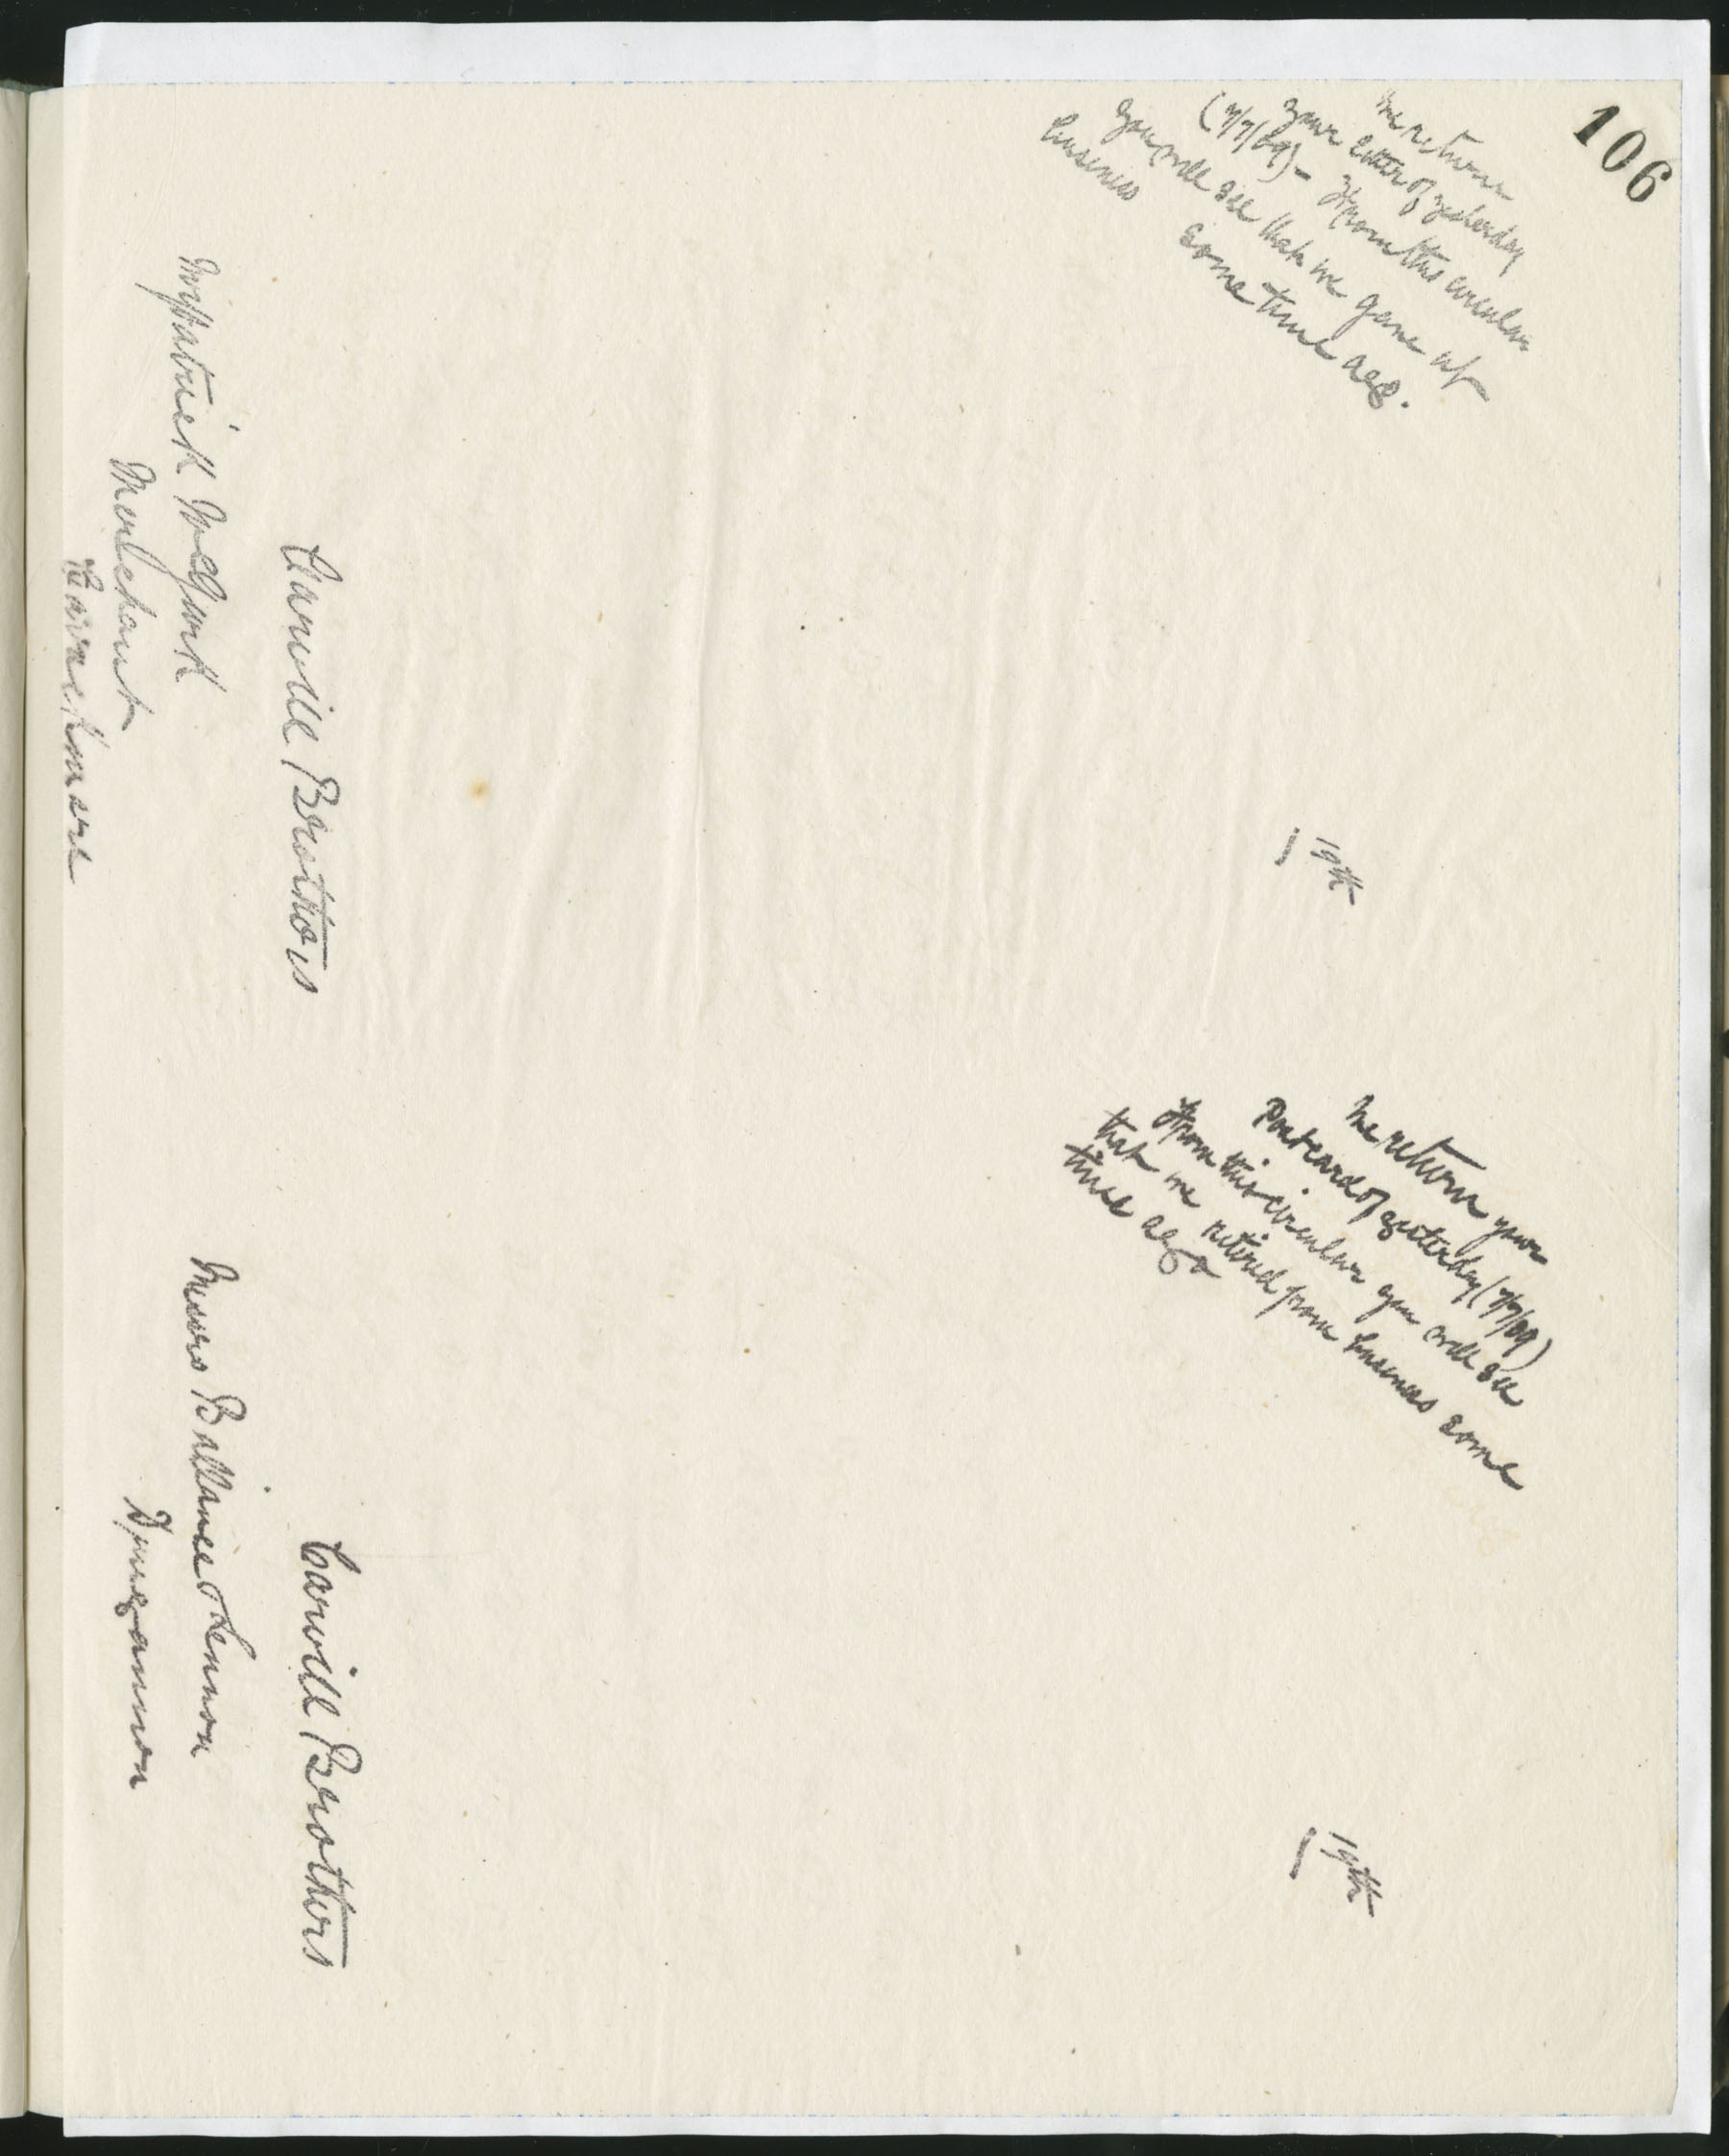 106
We return
your letter of yesterday
(7/7/09) - From this circular
you will see that we gave up
business some time ago.
19th
Carvill Brothers
Patrick McGurk
Merchant
We return your
Postcard of yesterday (7/7/09)
From this circular you will see
that we retired from business some
time ago
19th
Carvill Brothers
Messrs Ballance & Lennon
Dungannon